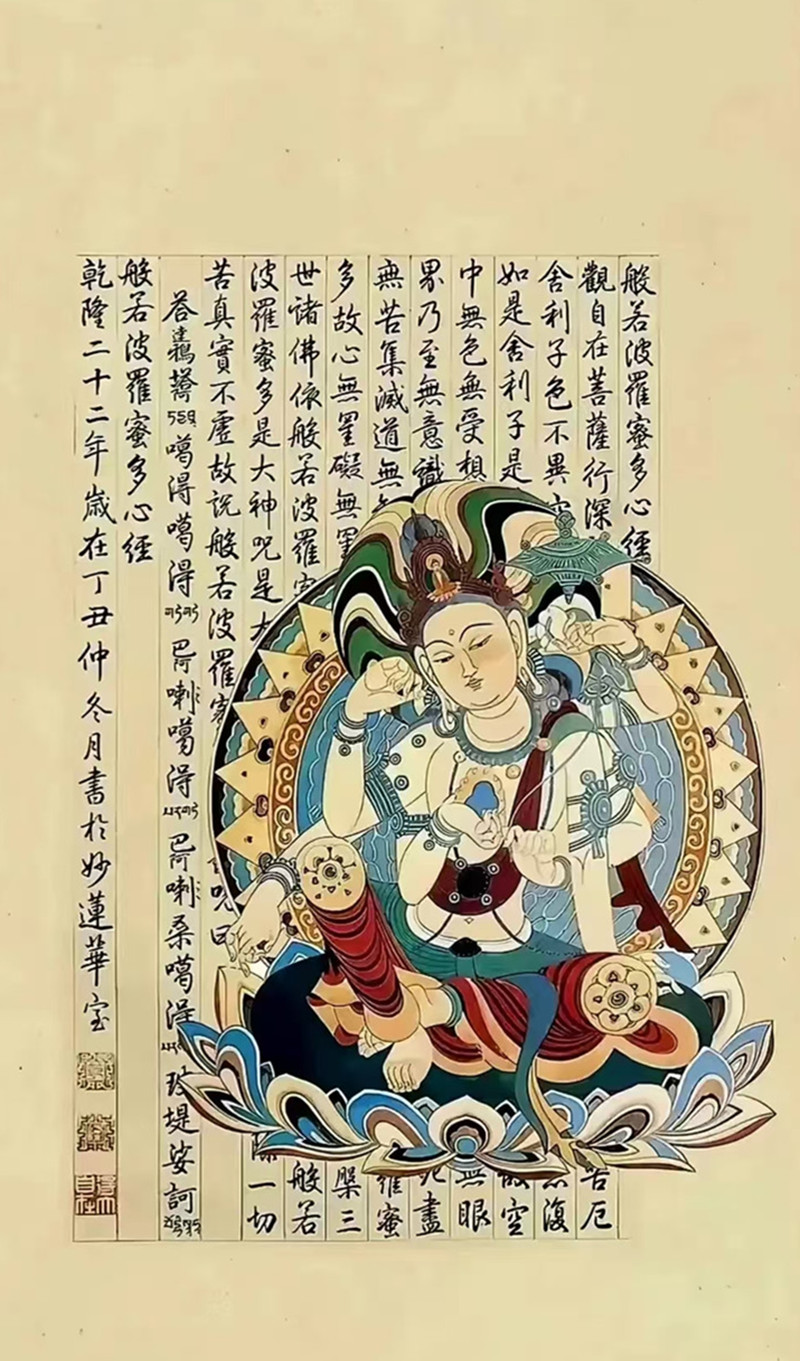 般若波羅蜜多心經
觀自在菩薩行深 苦厄
舍利子色不異空 復
如是舍利子是 空
中無色無受想 無眼
界乃至無意識 死盡
無苦集滅道無 羅蜜
多故心無罣礙無罣 槃三
世諸佛依般若波羅蜜 般若
波羅蜜多是大神咒是大 除一切
苦真實不虛故說般若波羅蜜 咒曰
噶得噶得 巴阿喇噶得 巴阿喇桑噶得 玻堤娑訶
般若波羅蜜多心經
乾隆二十二年歲在丁丑仲冬月書於妙蓮華室